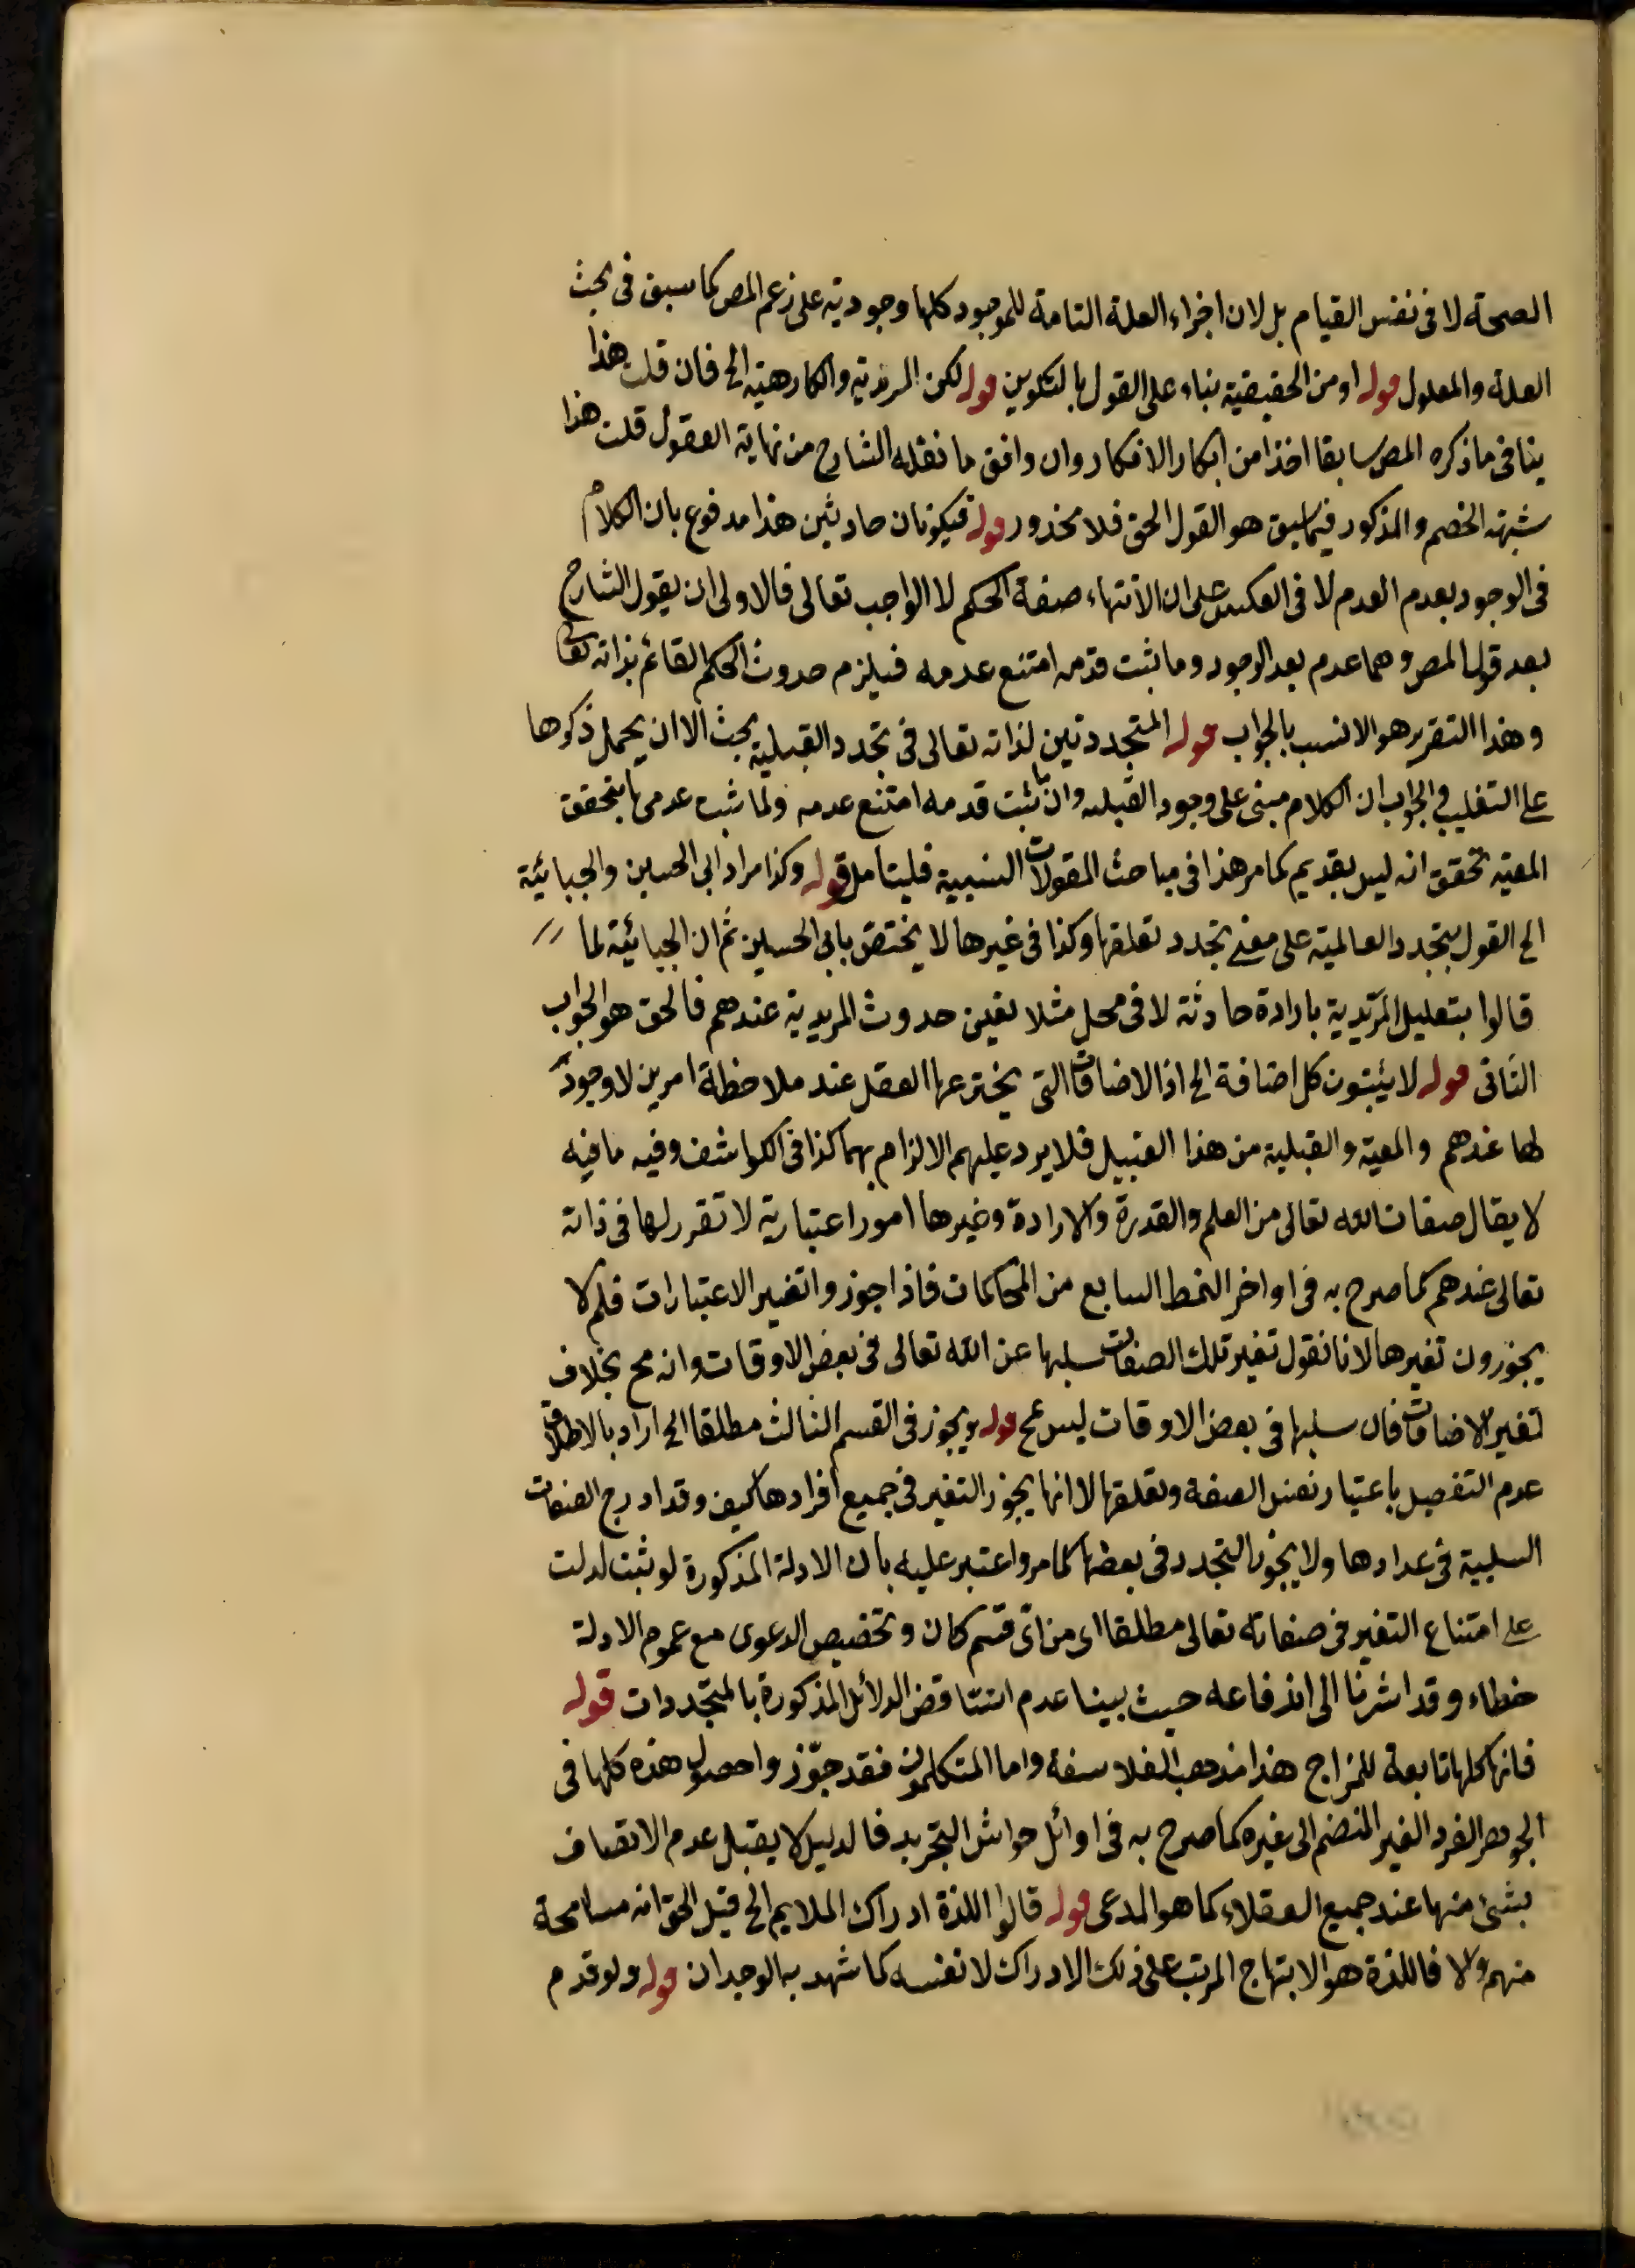 الصحة لا فى نفس القيام بل لان اجزاء العلة التامة للموجود كلها وجودية على زعم المص كما سبق فى بحث
العلة والمعلول قوله او من الحقيقية بناء على القول بالتكوين قوله لكن المريدية والكارهية الخ فان قلت هذا
ينافى ما ذكره المص سابقا اخذا من ابكار الافكار وان وافق ما نقله الشارح من نهاية العقول قلت هذا
شبهة الخصم والمذكور فيما سبق هو القول الحق فلا محذور قوله فيكونان حادثين هذا مدفوع بان الكلام
فى الوجود بعدم العدم لا فى العكس على ان الانتهاء صفة الحكم لا الواجب تعالى فالاولى ان يقول الشارح
بعد قول المص وهما عدم بعد الوجود وما ثبت قدمه امتنع عدمه فيلزم حدوث الحكم القائم بذاته تعالى
وهذا التقرير هو الانسب بالجواب قوله المتجددتين لذاته تعالى فى تجدد القبلية بحث الا ان يحمل ذكرها
على التغليب فى الجواب ان الكلام مبنى على وجود القبلية وان ما ثبت قدمه امتنع عدمه ولما ثبت عدمها بتحقق
المعية تحقق انه ليس بقديم كما مر هذا فى مباحث المقولات النسبية فليتأمل قوله وكذا مراد ابى الحسين والجبائية
الخ القول بتجدد العالمية على معنى تجدد تعلقها وكذا فى غيرها لا يختص بابى الحسين ثم ان الجبائية لما
قالوا بتعليل المريدية بارادة حادثة لا فى محل مثلا تعين حدوث المريدية عندهم فالحق هو الجواب
الثانى قوله لا يثبتون كل اضافة الخ اذ الاضافات التى يخترعها العقل عند ملاحظة امرين لا وجود
لها عندهم والمعية والقبلية من هذا القبيل فلا يرد عليهم الالزام بهما كذا فى الكواشف وفيه ما فيه
لا يقال صفات الله تعالى من العلم والقدرة والارادة وغيرها امور اعتبارية لا تقرر لها فى ذاته
تعالى عندهم كما صرح به فى اواخر النمط السابع من المحاكمات فاذا جوزوا تغير الاعتبارات فلم لا
يجوزون تغيرها لانا نقول تغير تلك الصفات سلبها عن الله تعالى فى بعض الاوقات وانه مح بخلاف
تغير الاضافات فان سلبها فى بعض الاوقات ليس بمح قوله ويجوز فى القسم الثالث مطلقا الخ اراد بالاطلاق
عدم التفصيل باعتبار نفس الصفة وتعلقها لا انها يجوز التغير فى جميع افرادها كيف وقد ادرج الصفات
السلبية فى عدادها ولا يجوز التجدد فى بعضها كما مر واعتبر عليه بان الادلة المذكورة لو ثبت لدلت
على امتناع التغير فى صفاته تعالى مطلقا اى من اى قسم كان وتخصيص الدعوى مع عموم الادلة
خطاء وقد اشرنا الى اندفاعه حيث بينا عدم انتقاض الدلائل المذكورة بالمتجددات قوله
فانها كلها تابعة للمزاج هذا مذهب الفلاسفة واما المتكلمون فقد جوّزوا حصول هذه كلها فى
الجوهر الفرد الغير المنضم الى غيره كما صرح به فى اوائل حواشى التجريد فالدليل لا يقبل عدم الاتصاف
بشئ منها عند جميع العقلاء كما هو المدعى قوله قالوا اللذة ادراك الملايم الخ قيل الحق انه مسامحة
منهم والا فاللذة هو الابتهاج المرتب على ذلك الادراك لا نفسه كما شهد به الوجدان قوله ولو قدم